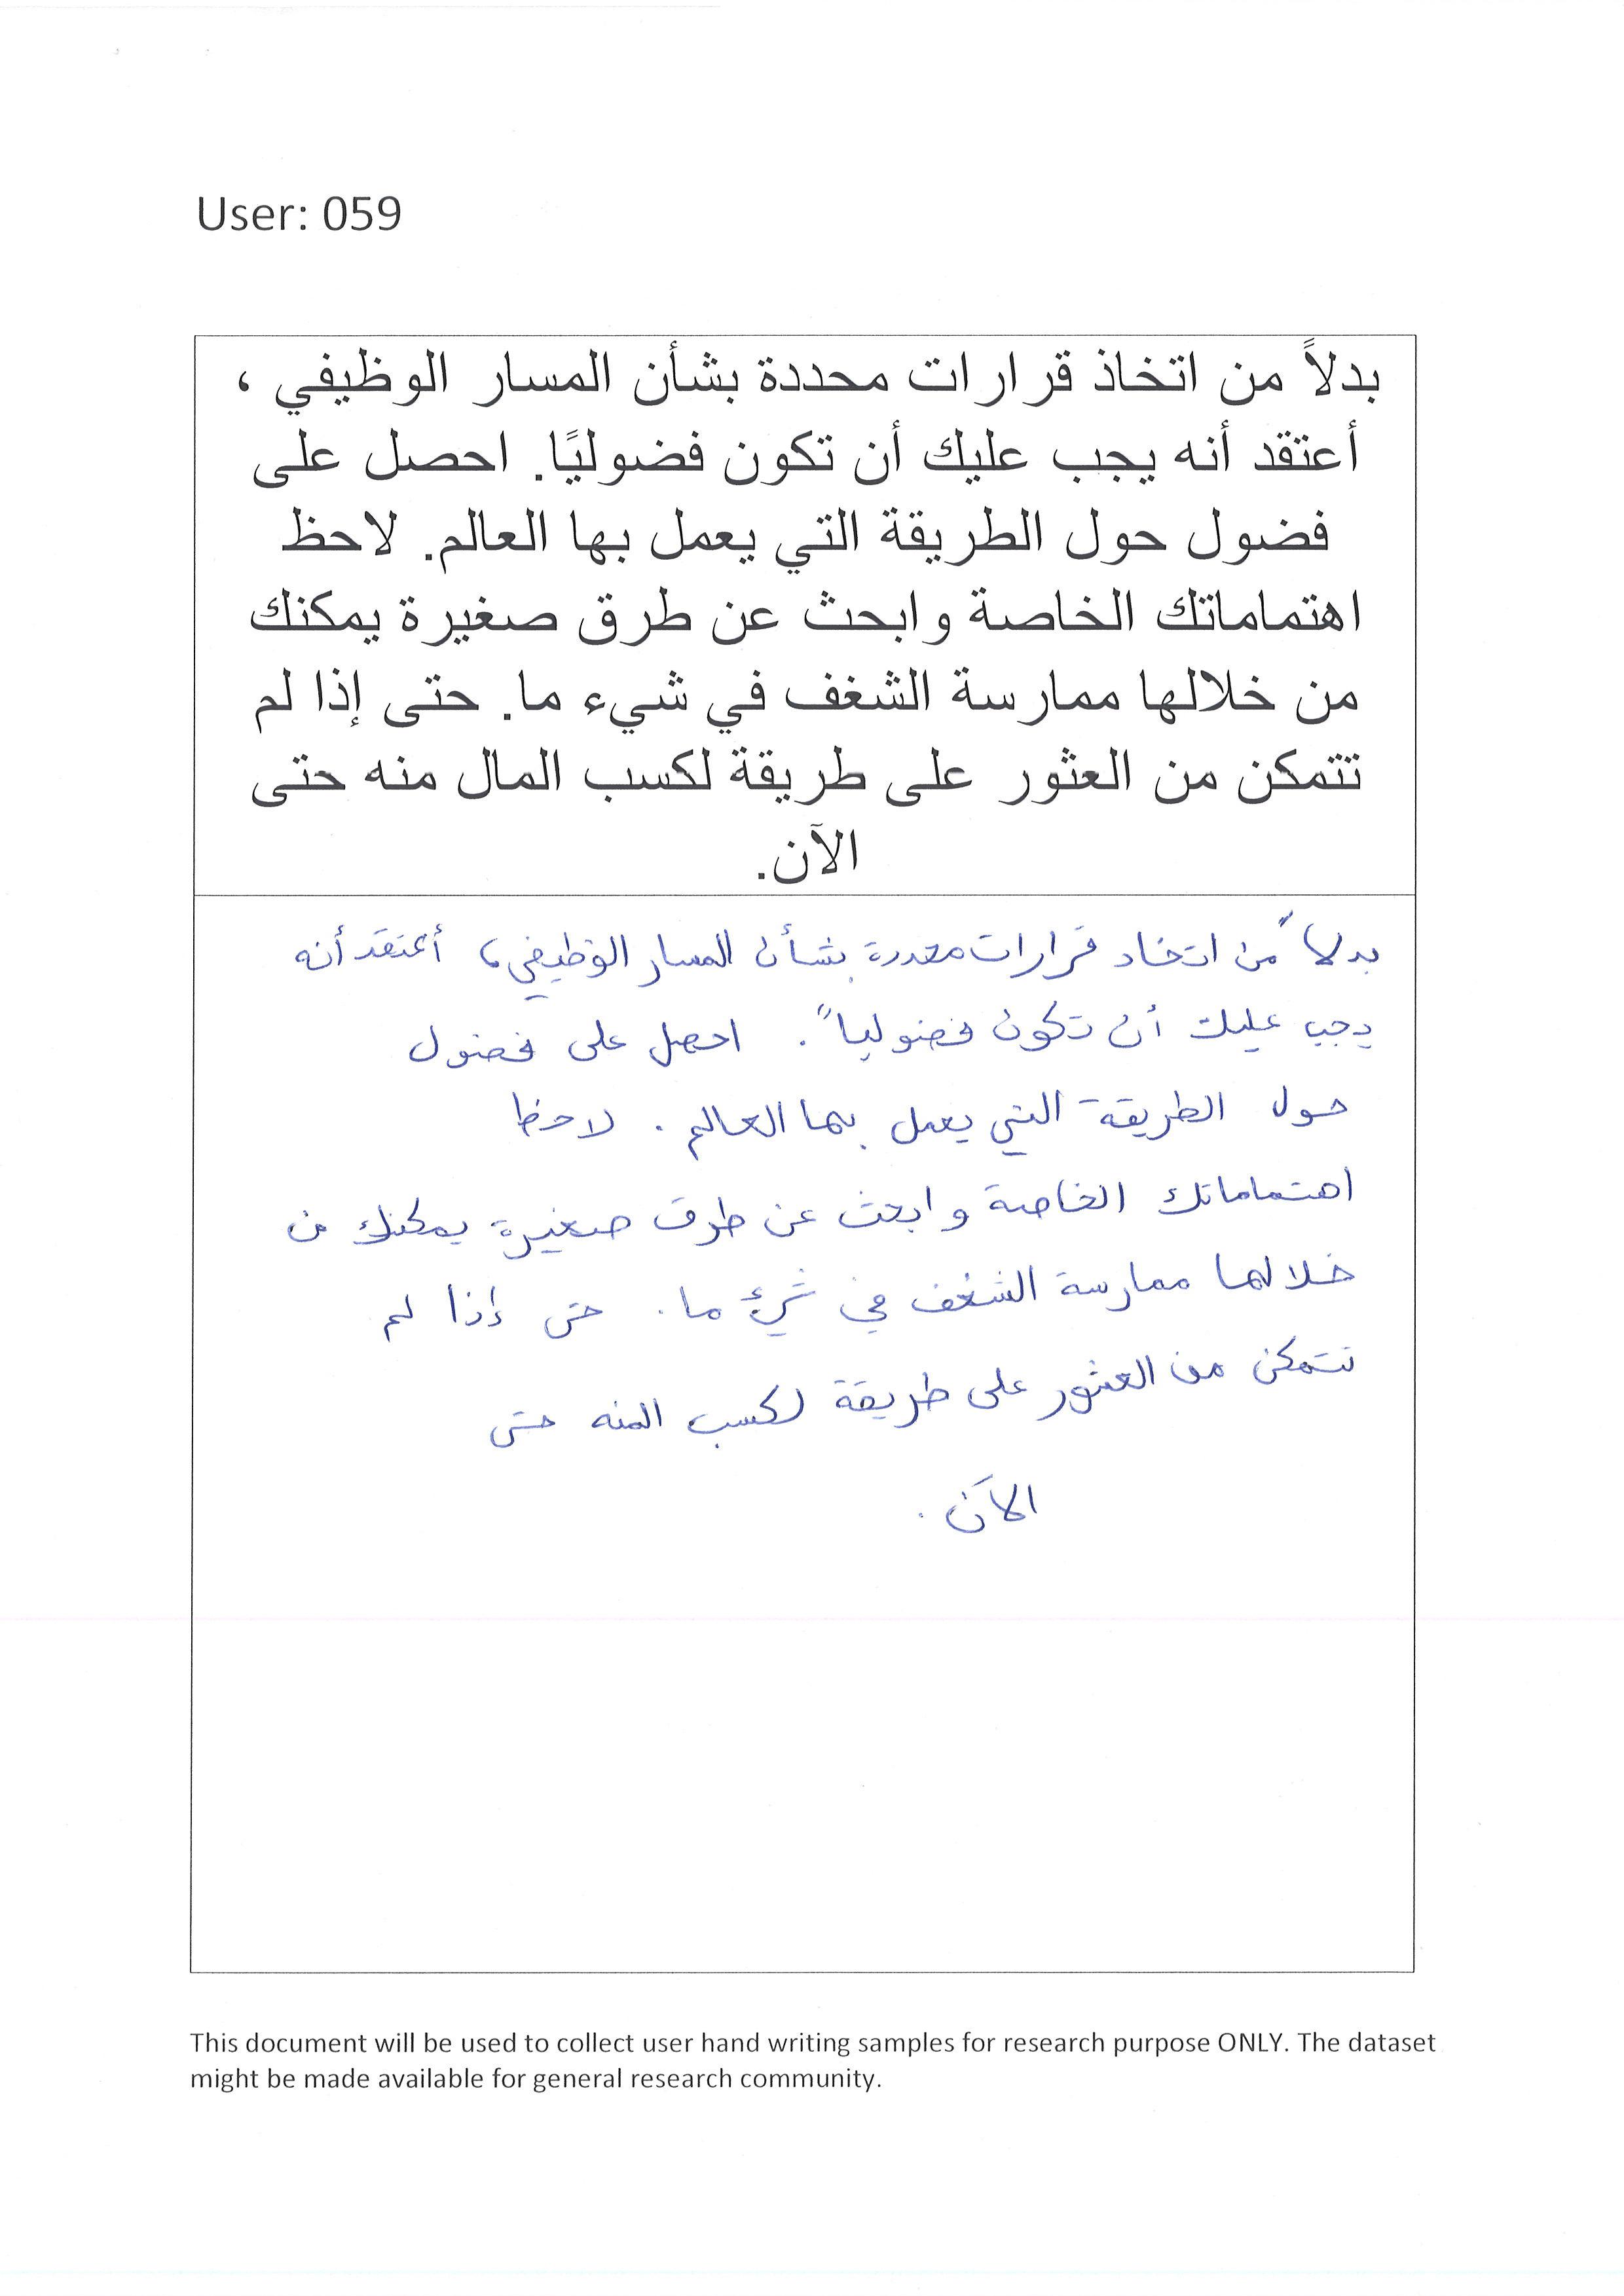 User: 059
بدلاً من اتخاذ قرارات محددة بشأن المسار الوظيفي ،
أعتقد أنه يجب عليك أن تكون فضوليًا. احصل على
فضول حول الطريقة التي يعمل بها العالم. لاحظ
اهتماماتك الخاصة وابحث عن طرق صغيرة يمكنك
من خلالها ممارسة الشغف في شيء ما. حتى إذا لم
تتمكن من العثور على طريقة لكسب المال منه حتى
الآن.
بدلاً من اتخاد قرارات محددة بشأن المسار الوظيفي، أعتقد أنه
يجب عليك أن تكون فضولياً. احصل على فضول
حول الطريقة التي يعمل بها العالم. لاحظ
اهتماماتك الخاصة وابحث عن طرق صغيرة يمكنك من
خلالها ممارسة الشغف في شيء ما. حتى إذا لم
تتمكن من العثور على طريقة لكسب المنه حتى
الآن.
This document will be used to collect user hand writing samples for research purpose ONLY. The dataset
might be made available for general research community.